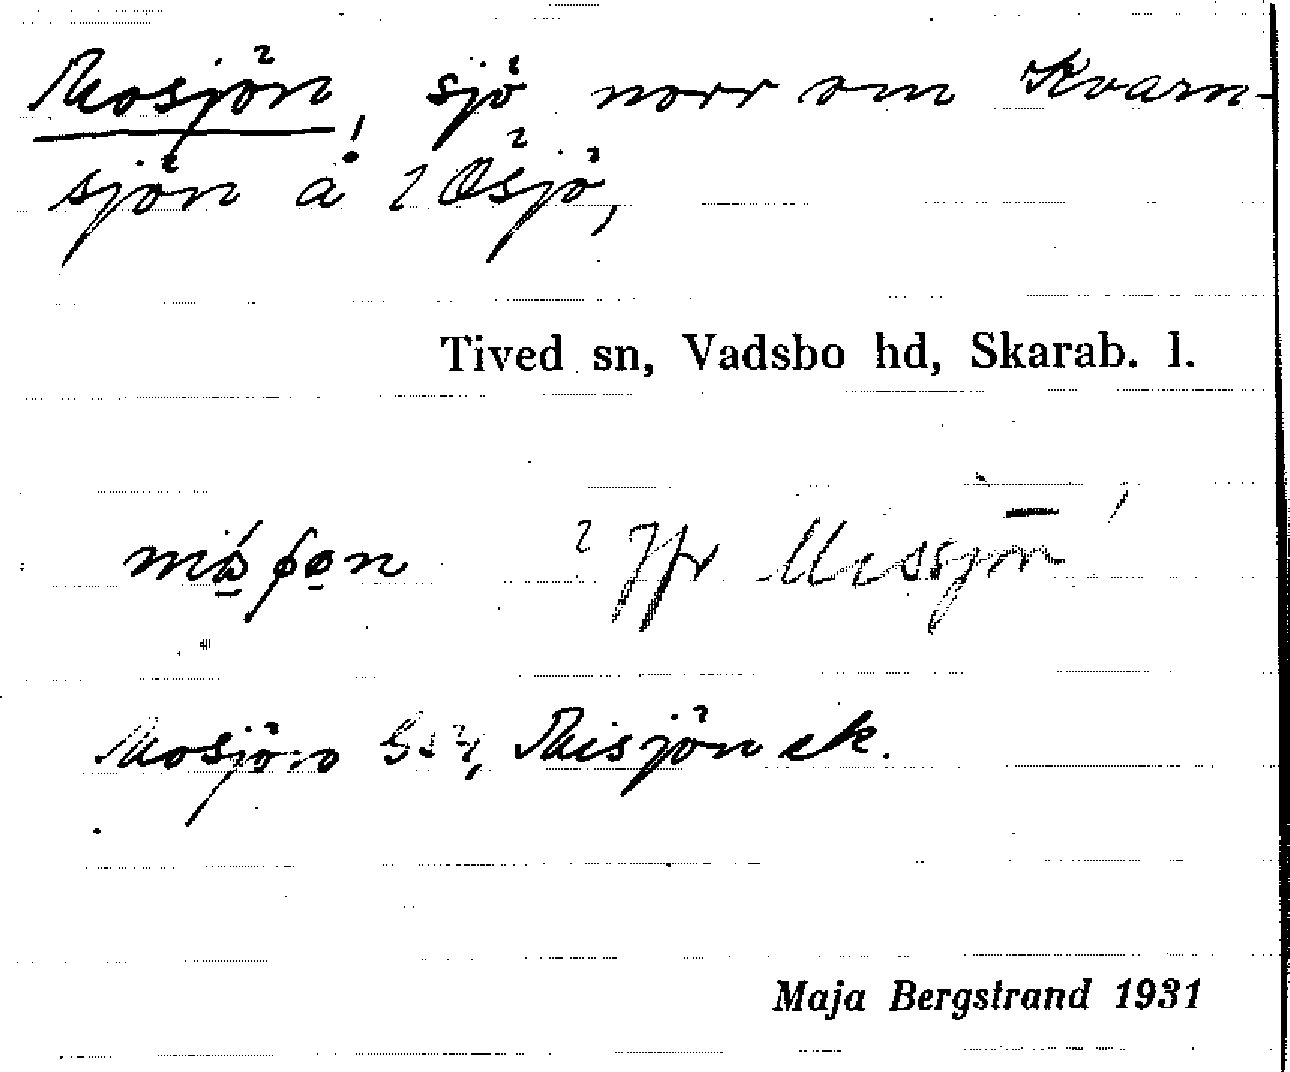 Mosjön, sjö norr om Kvarn-
sjön å Ösjö,
Tived sn, Vadsbo hd, Skarab. l.
Jfr Missjön
Mosjön Gsk, Misjön ek.
Maja Bergstrand 1931